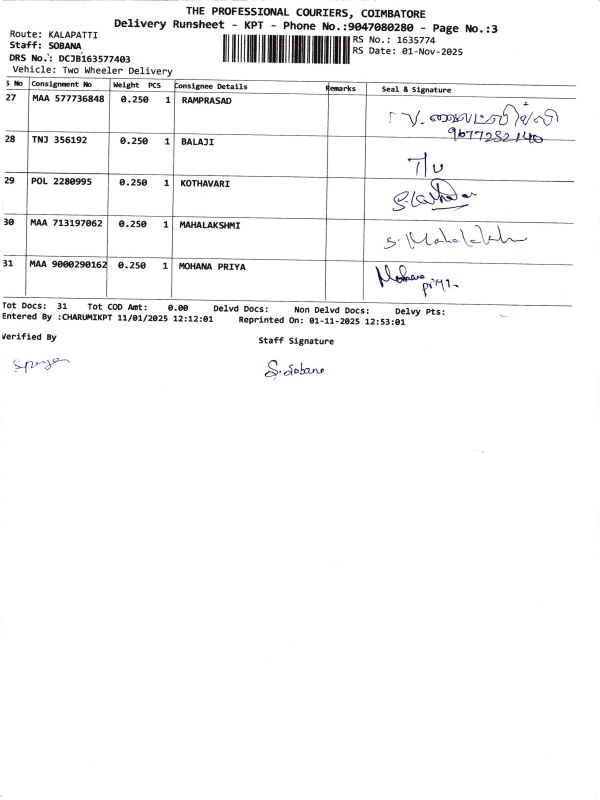 THE PROFESSIONAL COURIERS, COIMBATORE
Delivery Runsheet - KPT - Phone No.:9047080280 - Page No.:3
Route: KALAPATTI
RS No.: 1635774
Staff: SOBANA
RS Date: 01-Nov-2025
DRS No.: DCJB163577403
Vehicle: Two Wheeler Delivery
S No Consignment No Weight PCS Consignee Details Remarks Seal & Signature
27 MAA 577736848 0.250 1 RAMPRASAD
9677252140
28 TNJ 356192 0.250 1 BALAJI
29 POL 2280995 0.250 1 KOTHAVARI
30 MAA 713197062 0.250 1 MAHALAKSHMI S. Mahalakshmi
31 MAA 9000290162 0.250 1 MOHANA PRIYA Mohana
priya
Tot Docs: 31 Tot COD Amt: 0.00 Delvd Docs: Non Delvd Docs: Delvy Pts:
Entered By :CHARUMIKPT 11/01/2025 12:12:01 Reprinted On: 01-11-2025 12:53:01
Verified By Staff Signature
S. Sobana